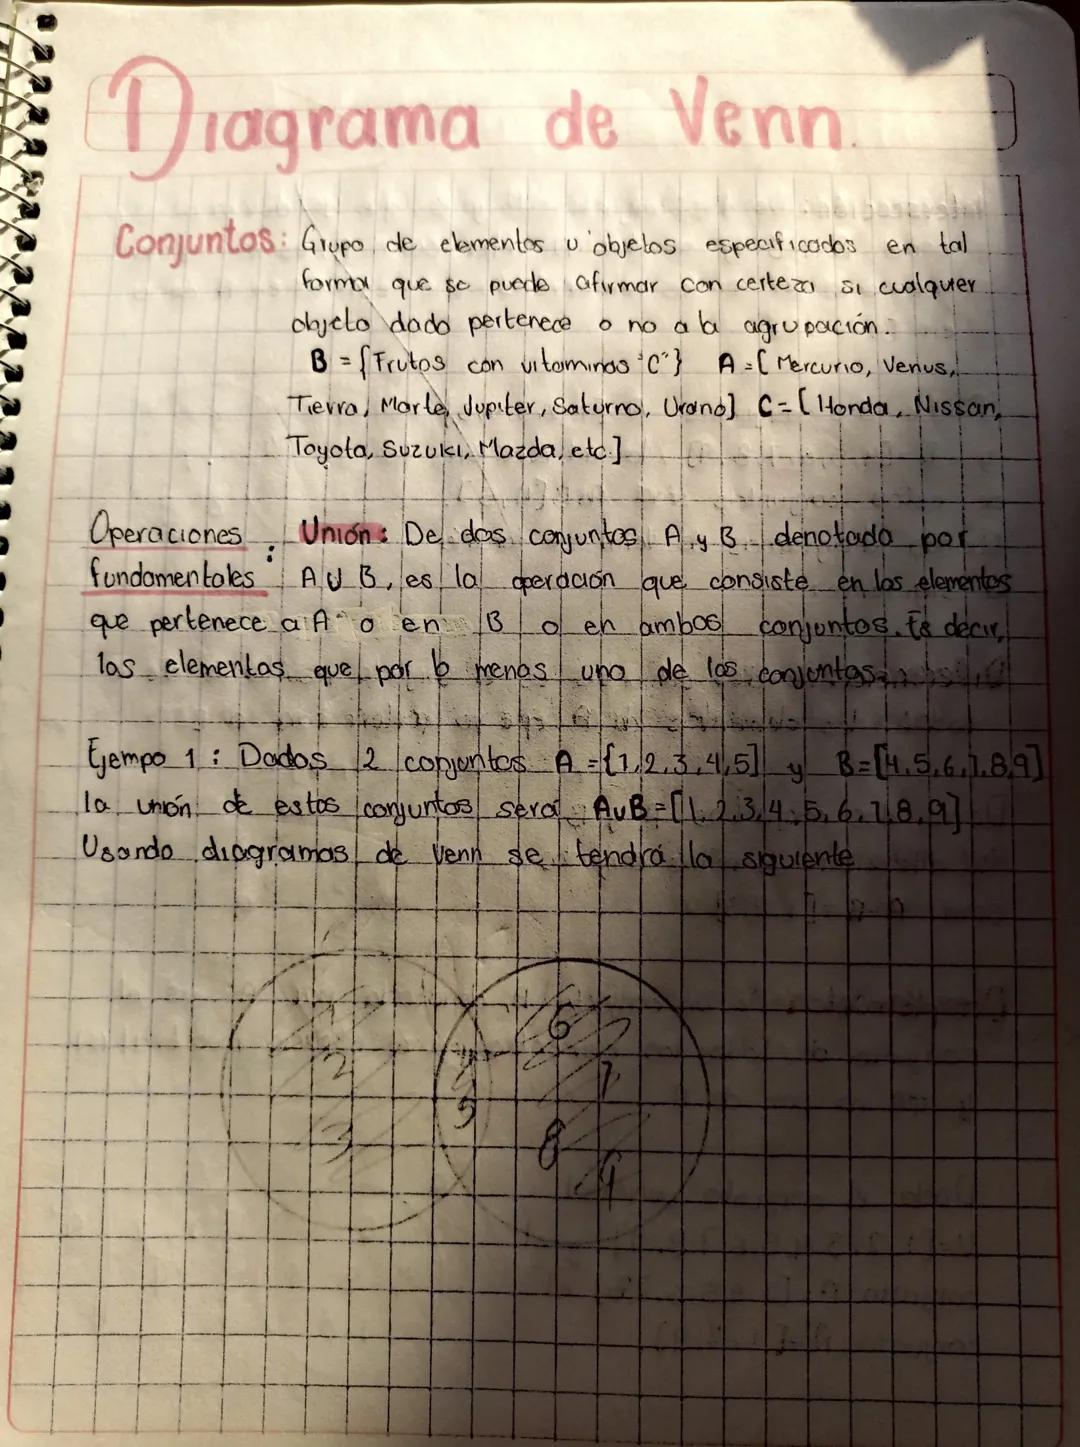 Diagrama de Venn.
Conjuntos: Grupo de elementos u objetos especificados en tal
forma que se puede afirmar con certeza si cualquier
objeto dado pertenece o no a la agrupación.
B = {Frutos con vitaminas "C"} A = [Mercurio, Venus,
Tierra, Marte, Jupiter, Saturno, Urano] C = [Honda, Nissan,
Toyota, Suzuki, Mazda, etc.]
Operaciones : Unión: De dos conjuntos A y B denotado por
fundamentales A U B, es la operación que consiste en los elementos
que pertenece a A o en B o en ambos conjuntos. Es decir,
los elementos que por lo menos uno de los conjuntos.
Ejempo 1: Dados 2 conjuntos A = {1,2,3,4,5] y B = [4,5,6,7,8,9]
la unión de estos conjuntos será AUB = [1,2,3,4,5,6,7,8,9]
Usando diagramas de Venn se tendrá la siguiente
1 6
2 4 7
3 5 8
9